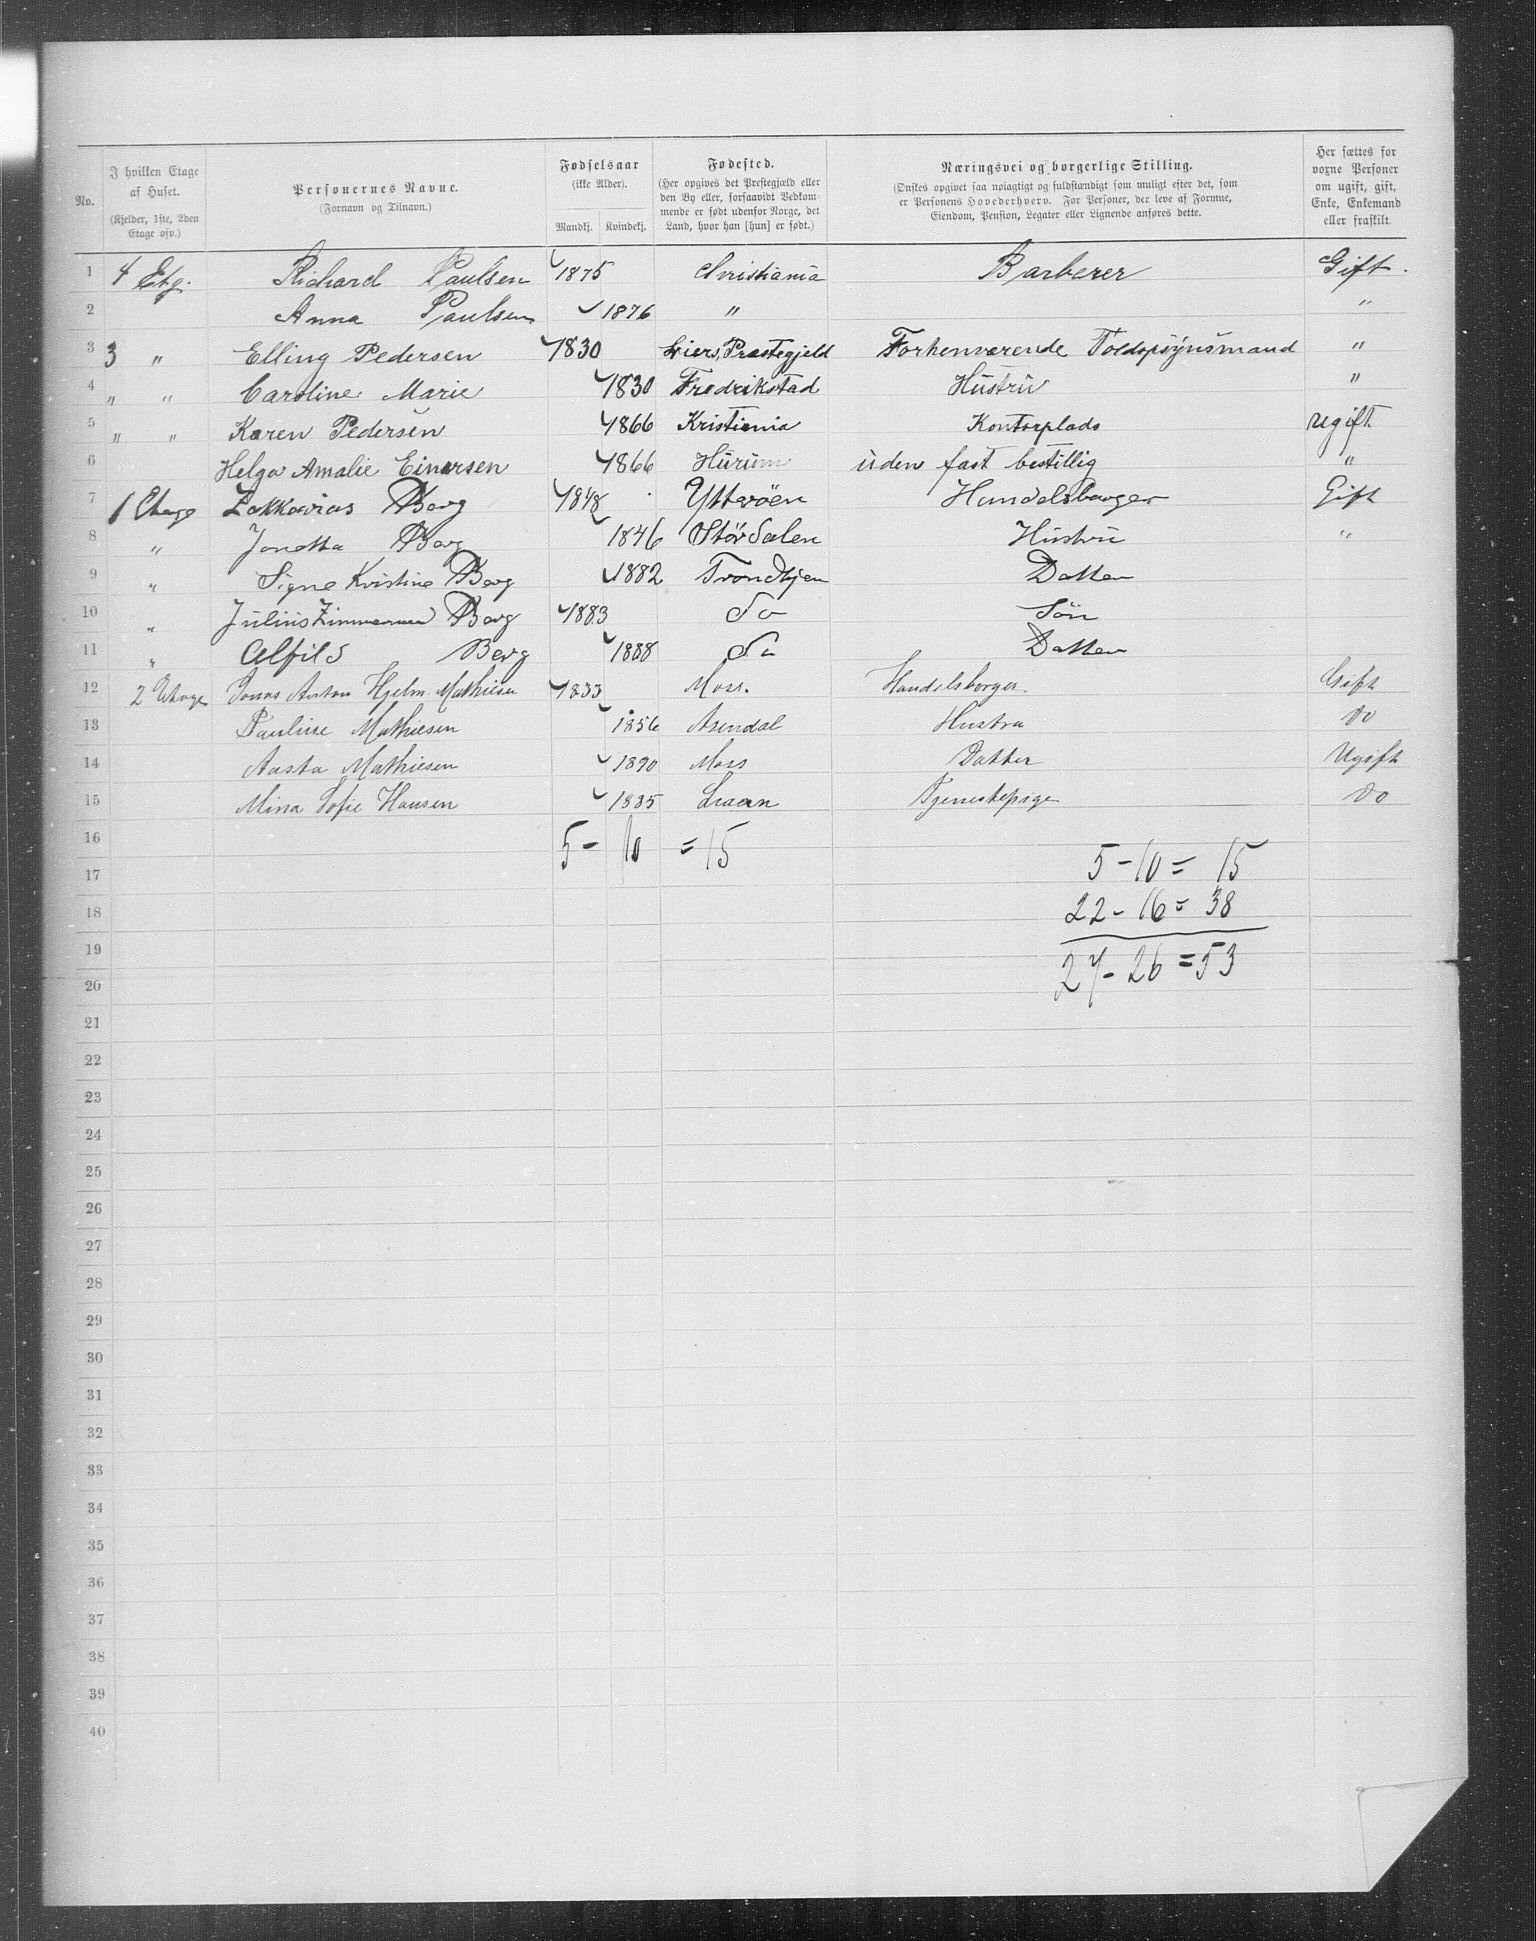 No.
I hvilken Etage af Huset.
(Kjelder, 1ste, 2den Etage osv.)
Personernes Navne.
(Fornavn og Tilnavn.)
Fødselsaar
(ikke Alder).
Mandkj. Kvindekj.
Fødested.
(Her opgives det Prestegjæld eller
den By eller, forsaavidt Vedkom-
mende er født udenfor Norge, det
Land, hvor han [hun] er født.)
Næringsvei og borgerlige Stilling.
(Ønskes opgivet saa nøiagtigt og fuldstændigt som muligt efter det, som
er Personens Hovederhverv. For Personer, der leve af Formue,
Eiendom, Pension, Legater eller Lignende anføres dette.
Her sættes for
voxne Personer
om ugift, gift,
Enke, Enkemand
eller fraskilt.
1 4 Etg. Richard Paulsen 1875 Christiania Barberer Gift.
2 Anna Paulsen 1876 " "
3 3 " Elling Pedersen 1830 Liers, Præstegjeld Forhenværende Toldopsynsmand "
4 " " Caroline Marie 1830 Fredrikstad Hustru "
5 " " Karen Pedersen 1866 Kristiania Kontorplads ugift
6 Helga Amalie Einersen 1866 Hurum uden fast bestillig "
7 1 Etage Zakkarias Berg 1848 Ytterøen Handelsborger Gift
8 " Jonetta Berg 1846 Stördalen Hustru "
9 " Signe Kristine Berg 1882 Trondhjem Datter
10 " Julius Zimmerman Berg 1883 Do Søn
11 " Alfild Berg 1888 Do Datter
12 2 Etage Jonas Anton Hjelm Mathiesen 1833 Moss. Handelsborger. Gift
13 Pauline Mathiesen 1856 Arendal Hustru Do
14 Aasta Mathiesen 1890 Moss Datter Ugift
15 Mina Sofie Hansen 1885 Tjenestepige Do
16 5 - 10 = 15
17 5 - 10 = 15
18 22 - 16 = 38
19 27 - 26 = 53
20
21
22
23
24
25
26
27
28
29
30
31
32
33
34
35
36
37
38
39
40